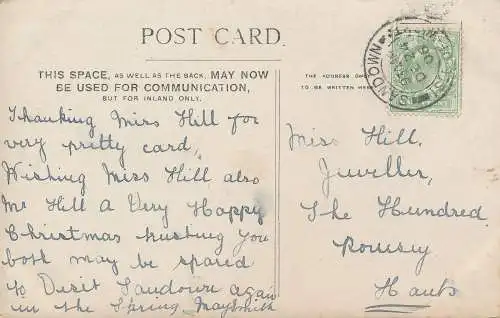 POST CARD.
THIS SPACE, AS WELL AS THE BACK, MAY NOW
BE USED FOR COMMUNICATION,
BUT FOR INLAND ONLY.
THE ADDRESS ON
TO BE WRITTEN HERE
SANDOWN
Thanking Miss Hill for
very pretty card,
Wishing Miss Hill also
Mr Hill A Very Happy
Christmas trusting you
both may be spared
to Visit Sandown again
in the Spring May Smith
Miss Hill,
Jeweller,
The Hundred
Romsey
Hants